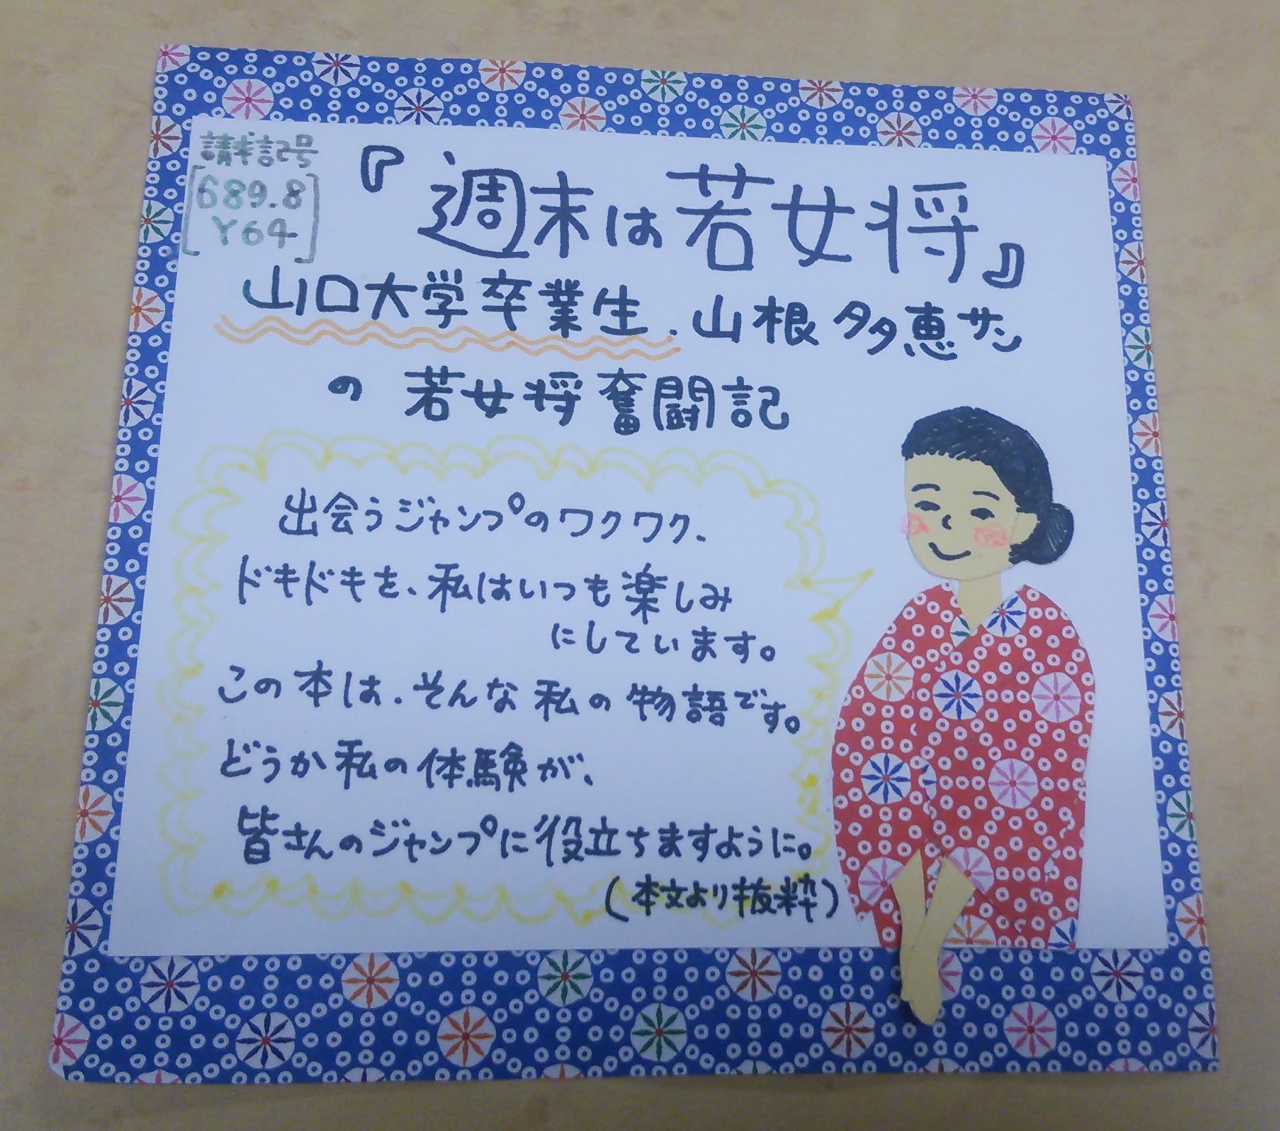 請求記号
689.8
Y64
『週末は若女将』
山口大学卒業生、山根多恵サン
の若女将奮闘記
出会うジャンプのワクワク、
ドキドキを、私はいつも楽しみ
にしています。
この本は、そんな私の物語です。
どうか私の体験が、
皆さんのジャンプに役立ちますように。
(本文より抜粋)